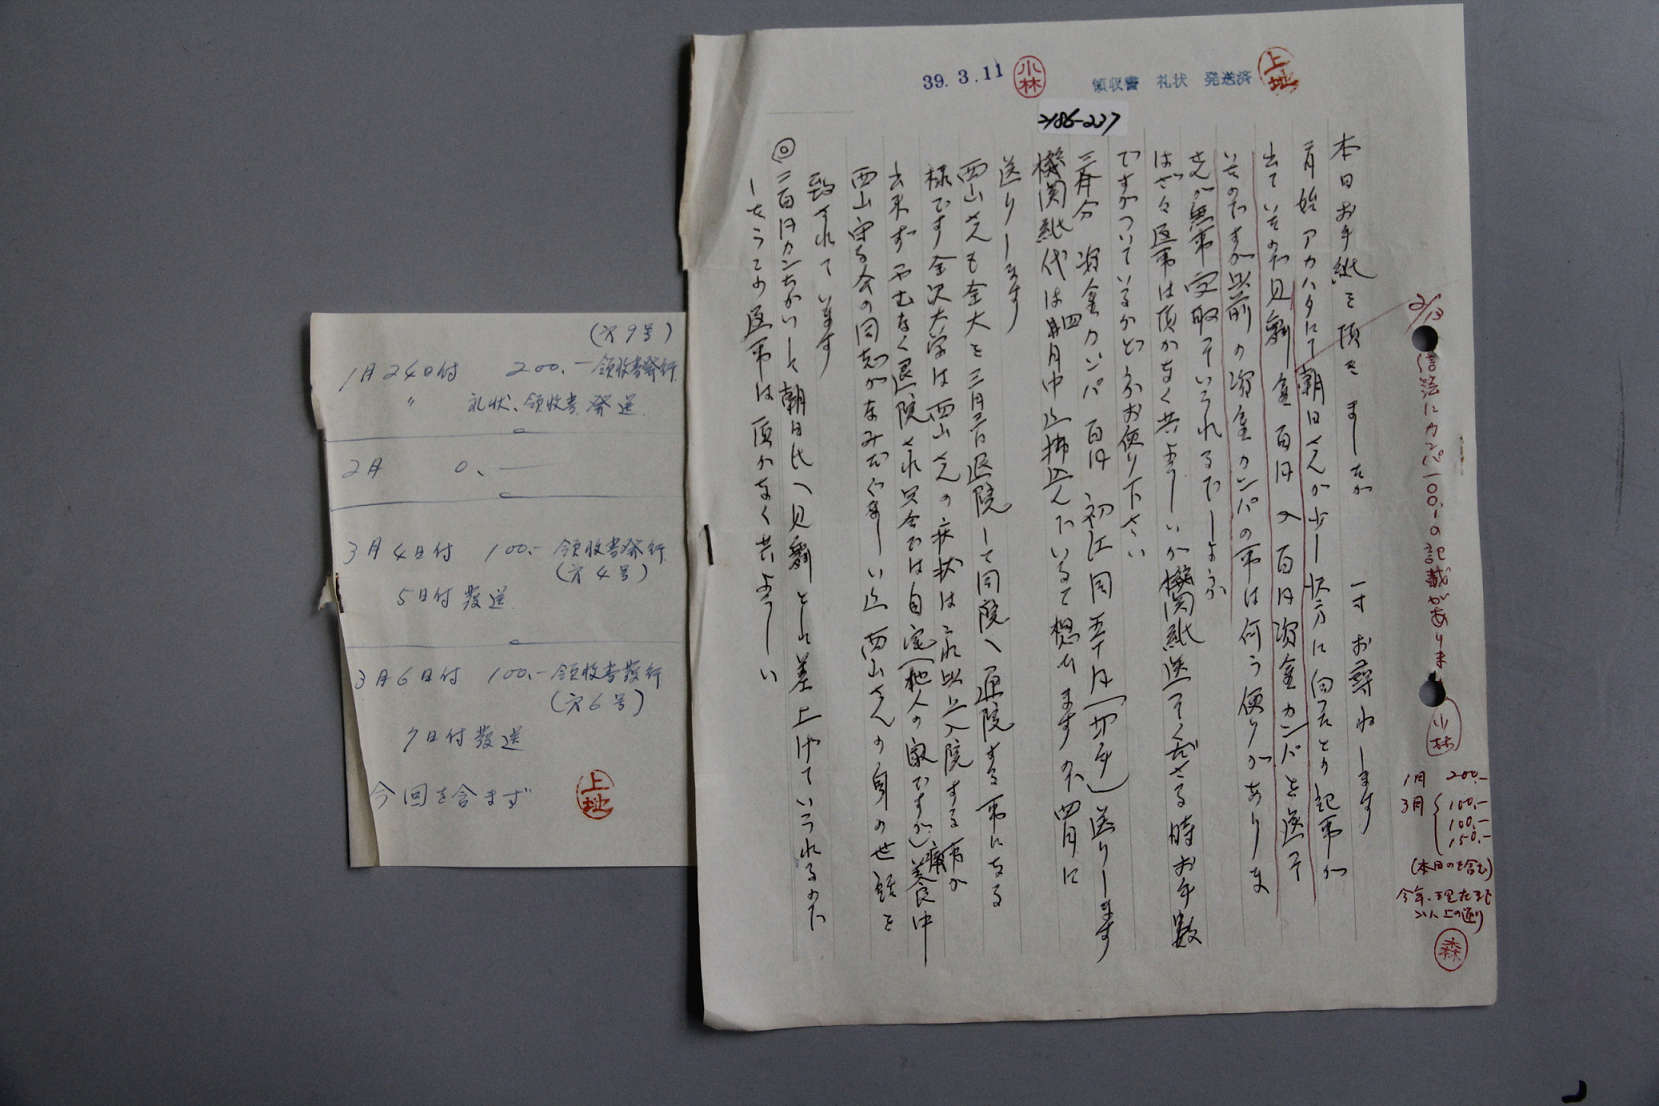 39.3.11
小林
領収書 礼状 発送済
上地
2186-227
本日お手紙を頂きましたが 一寸お尋ねします
二月始アカハタにて朝日さんが少し快方に向つたとの記事が
出ていたので見舞金百円入百円資金カンパを送つて
いたのですが以前の資金カンパの事は何う便りがありま
せんが無事受取つていられるでしようか
はざ々返事は頂かなく共よろしいが機関紙送つてくださる時お手数
ですがついているかどうかお便り下さい
三月分 資金カンパ 百円 初江同五十円(切手)送りします
機関紙代は四月中迄拂込んでいると想いますので四月に
送りします
西山さんも金大を三月二日退院して同院へ通院する事になる
様です金沢大学は西山さんの病状は之れ以上入院する事が
出来ずやむなく退院され只今では自宅(他人の家ですが)養良中
西山守る会の同志がなみだぐましい迄西山さんの身の世話を
致されています
◎二百円カンちがいして朝日氏へ見舞とし差上げていられるので
しようこの返事は頂かなく共よろしい
2/13
信濃にカンパ一〇〇.-の記載があります
小林
1月 200.-
3月 100.-
100.-
150.-
(本日のを含む)
今年、現在まで
以上の通り
森
(才9号)
1月24日付 200.-領收書発行
〃 礼状、領收書発送
2月 0、-
3月4日付 100.- 領收書発行
(才4号)
5日付発送
3月6日付 100.-領收書発行
(才6号)
7日付発送
今回を含まず
上地